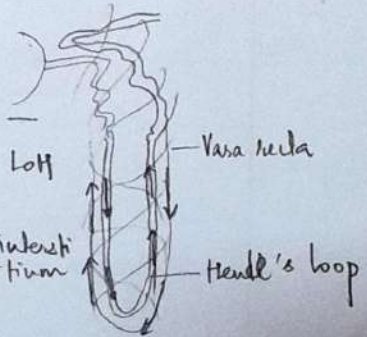 Vasa recta
LOH
intersti
tium
Henle's loop